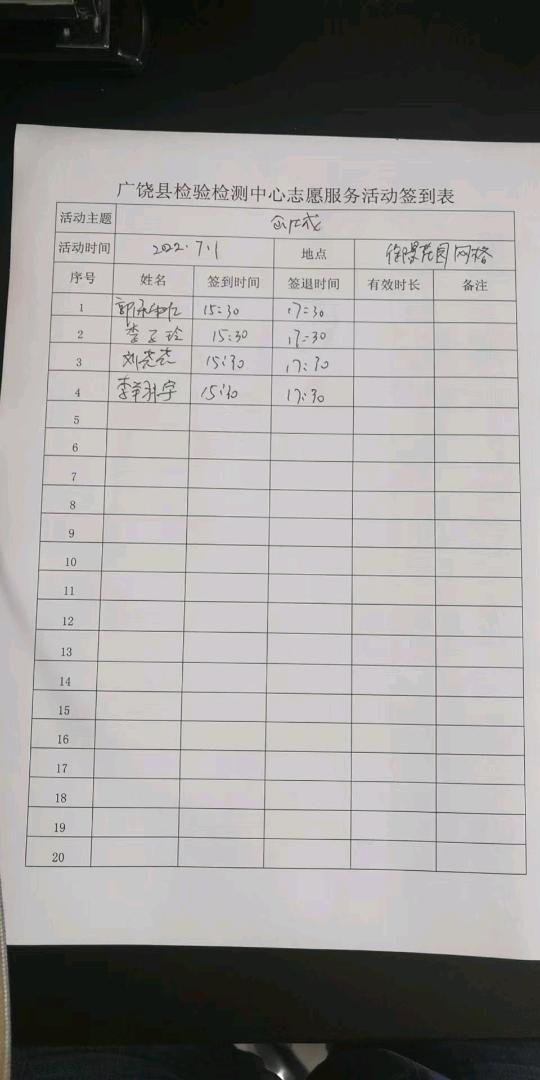 广饶县检验检测中心志愿服务活动签到表
活动主题 创城
活动时间 2022.7.1 地点 花园网格
序号 姓名 签到时间 签退时间 有效时长 备注
1 15:30 17:30
2 李 玲 15:30 17:30
3 刘 15:30 17:30
4 李 宇 15:30 17:30
5
6
7
8
9
10
11
12
13
14
15
16
17
18
19
20